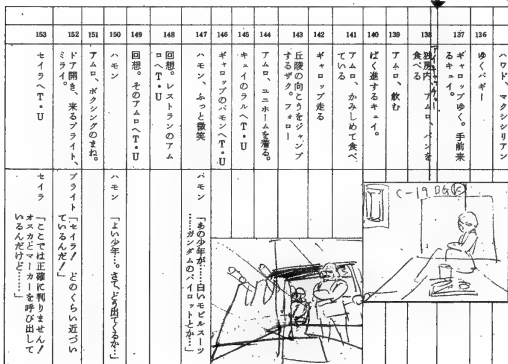 ハワド、マクシミリアン
136
ゆくバギー
137
ギャロップゆく。手前来
るキュイ。
138
独房内 アムロ、パンを
食べる
C-19 BG
139
アムロ、飲む
140
ばく進するキュイ。
141
アムロ、かみしめて食べ
ている
142
ギャロップ走る
143
丘陵の向こうをジャンプ
するザク。フォロー
144
アムロ、ユニホームを着る。
145
キュイのラルへT・U
146
ギャロップのハモンへT・U
147
ハモン、ふっと微笑
ハモン
「あの少年が……白いモビルスーツ
……ガンダムのパイロットとか…」
148
回想。レストランのアム
ロへT・U
149
回想。そのアムロへT・U
150
ハモン
ハモン
「よい少年…。さて、どう出てくるか…」
151
アムロ、ボクシングのまね。
152
ドア開き、来るブライト、
ミライ。
ブライト
「セイラ! どのくらい近づい
ているんだ!」
153
セイラへT・U
セイラ
「ここでは正確に判りません!
オスカとマーカーを呼び出して
いるんだけど……」